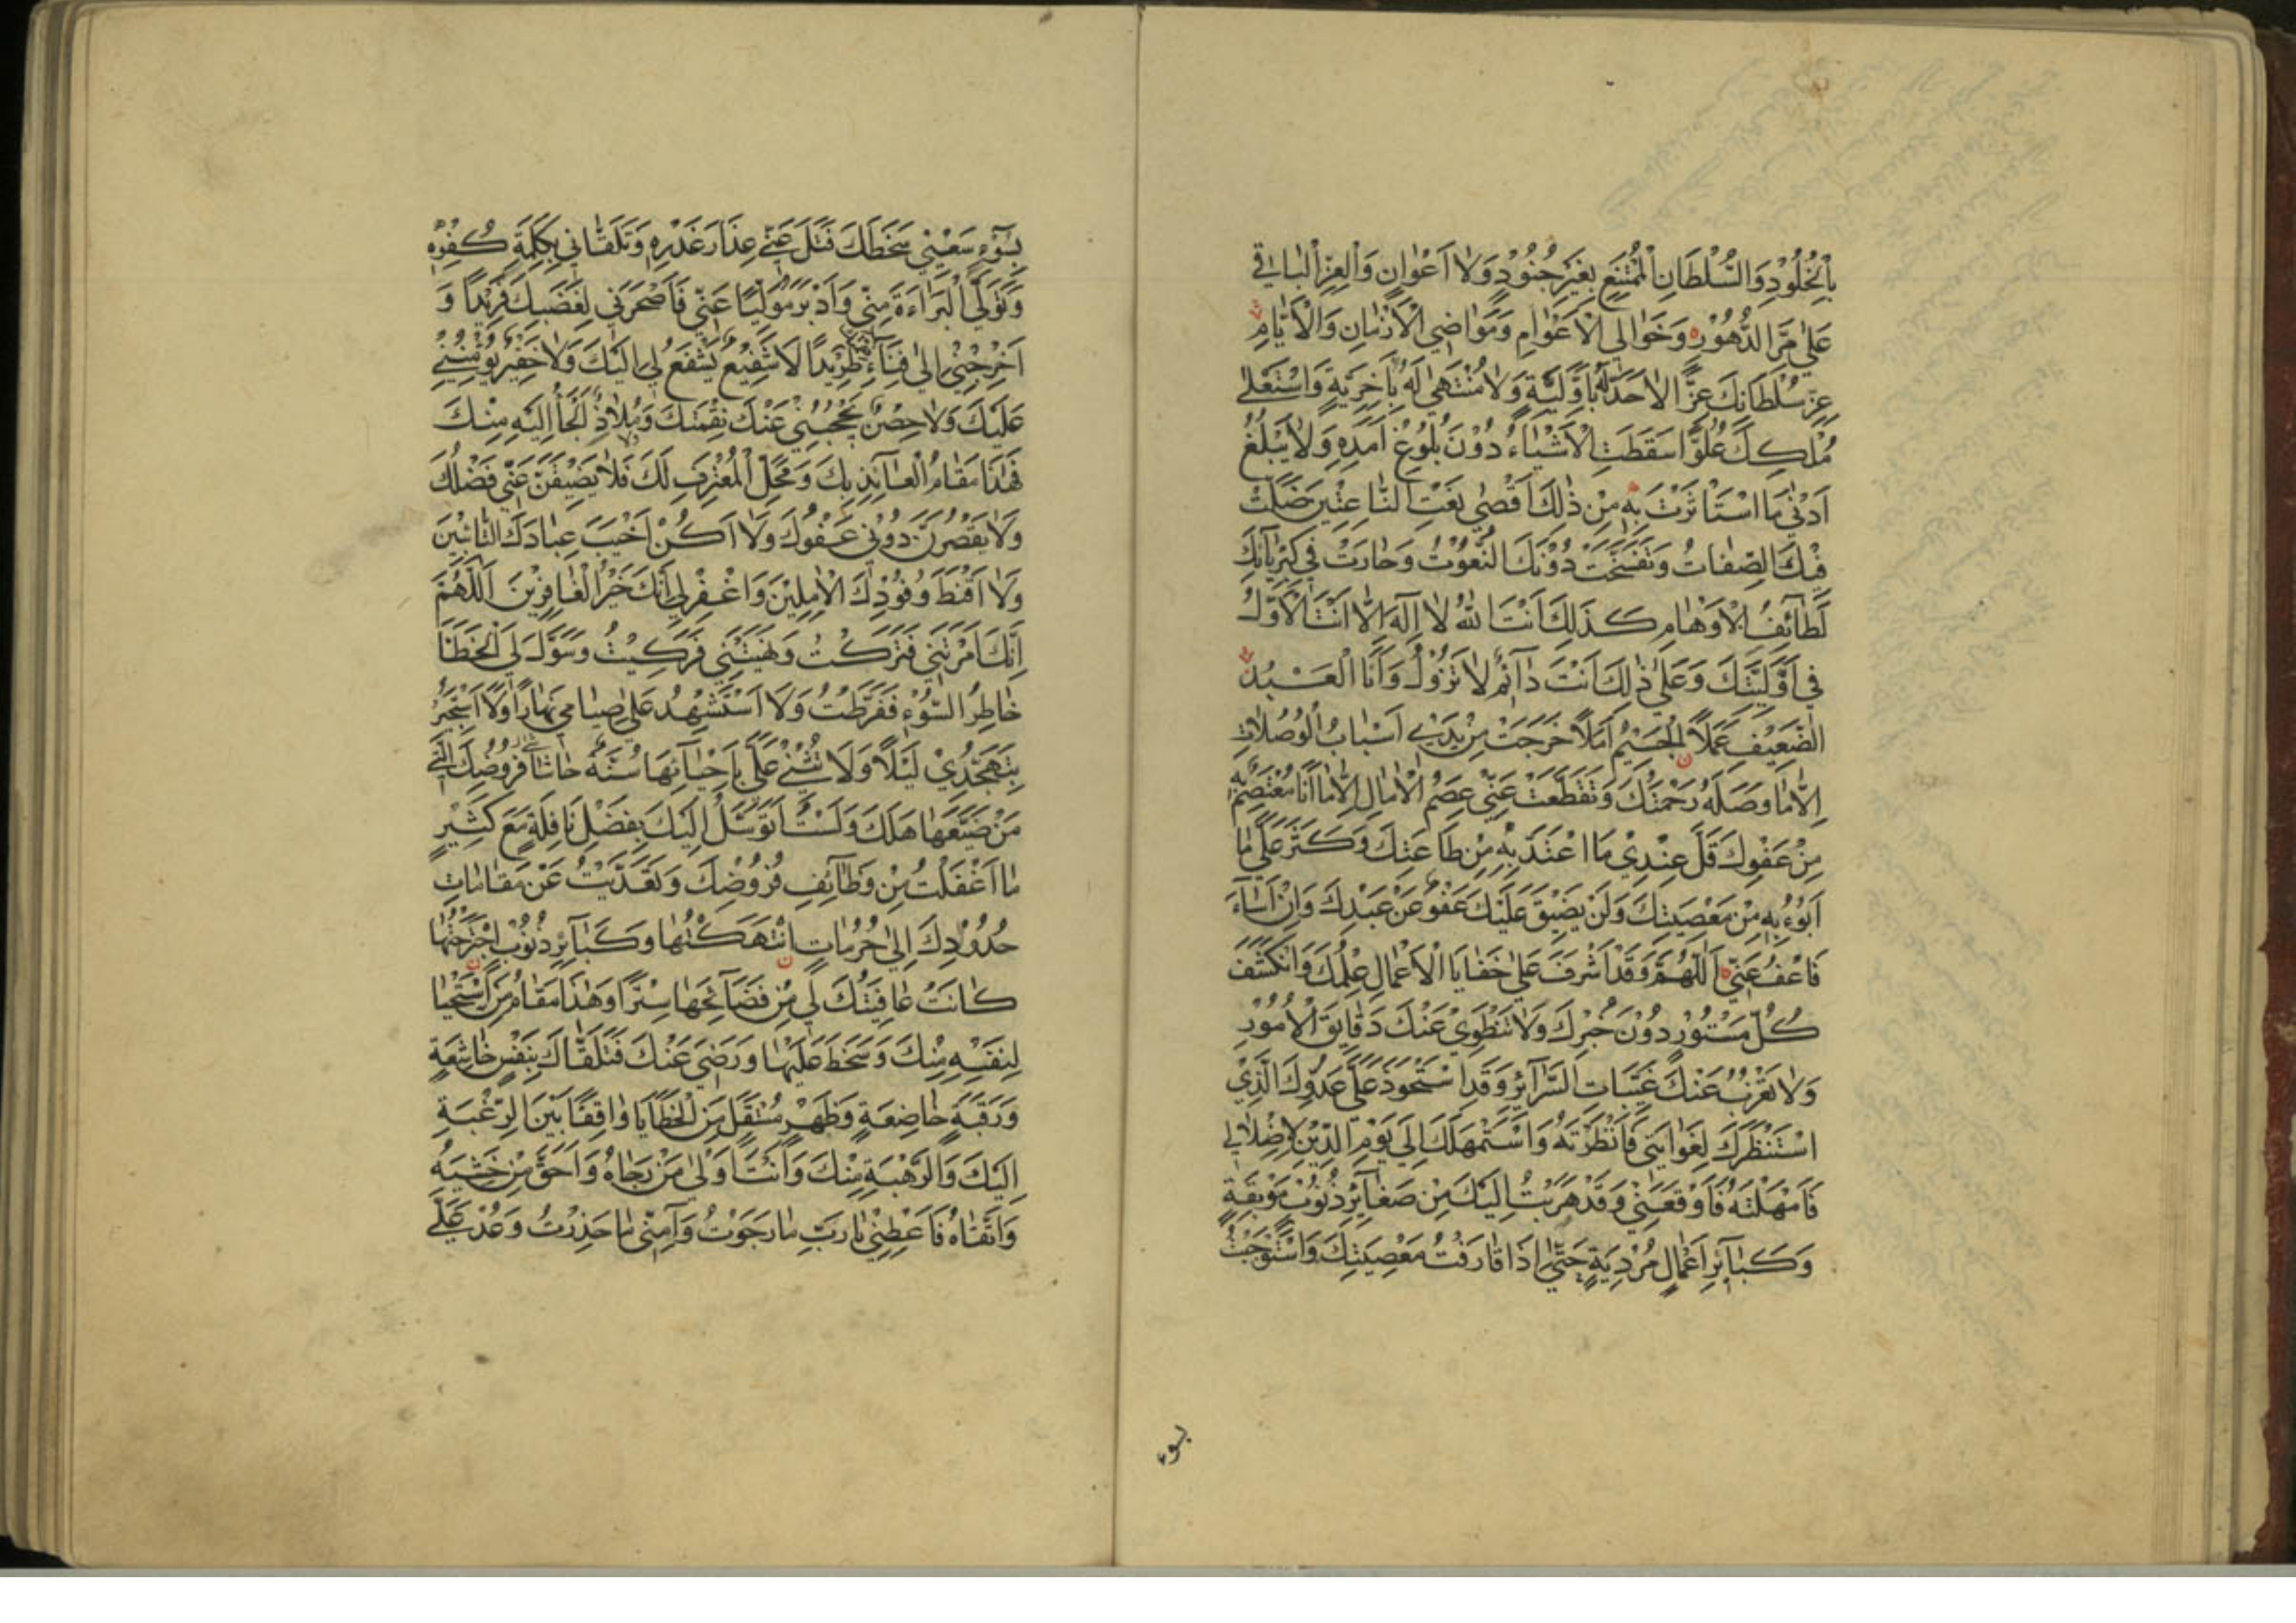 بِالْخُلُودِ وَالسُّلْطَانِ الْمُمْتَنِعِ بِغَيْرِ جُنُودٍ وَلَا أَعْوَانٍ وَالْعِزِّ الْبَاقِي
عَلَى مَرِّ الدُّهُورِ وَخَوَالِي الْأَعْوَامِ وَمَوَاضِي الْأَزْمَانِ وَالْأَيَّامِ
عِزِّ سُلْطَانِكَ عِزًّا لَا حَدَّ لَهُ بِأَوَّلِيَّةٍ وَلَا مُنْتَهَى لَهُ بِآخِرِيَّةٍ وَاسْتَعْلَى
مُلْكُكَ عُلُوًّا سَقَطَتِ الْأَشْيَاءُ دُونَ بُلُوغِ أَمَدِهِ وَلَا يَبْلُغُ
أَدْنَى مَا اسْتَأْثَرْتَ بِهِ مِنْ ذَلِكَ أَقْصَى نَعْتِ النَّاعِتِينَ ضَلَّتْ
فِيكَ الصِّفَاتُ وَتَفَسَّخَتْ دُونَكَ النُّعُوتُ وَحَارَتْ فِي كِبْرِيَائِكَ
لَطَائِفُ الْأَوْهَامِ كَذَلِكَ أَنْتَ اللَّهُ لَا إِلَهَ إِلَّا أَنْتَ الْأَوَّلُ
فِي أَوَّلِيَّتِكَ وَعَلَى ذَلِكَ أَنْتَ دَائِمٌ لَا تَزُولُ وَأَنَا الْعَبْدُ
الضَّعِيفُ عَمَلًا الْجَسِيمُ أَمَلًا خَرَجَتْ مِنْ يَدَيَّ أَسْبَابُ الْوُصُلَاتِ
إِلَّا مَا وَصَلَهُ رَحْمَتُكَ وَتَقَطَّعَتْ عَنِّي عِصَمُ الْآمَالِ إِلَّا مَا أَنَا مُعْتَصِمٌ بِهِ
مِنْ عَفْوِكَ قَلَّ عِنْدِي مَا أَعْتَدُّ بِهِ مِنْ طَاعَتِكَ وَكَثُرَ عَلَيَّ مَا
أَبُوءُ بِهِ مِنْ مَعْصِيَتِكَ وَلَنْ يَضِيقَ عَلَيْكَ عَفْوٌ عَنْ عَبْدِكَ وَإِنْ أَسَاءَ
فَاعْفُ عَنِّي اللَّهُمَّ وَقَدْ أَشْرَفَ عَلَى خَفَايَا الْأَعْمَالِ عِلْمُكَ وَانْكَشَفَ
كُلُّ مَسْتُورٍ دُونَ خُبْرِكَ وَلَا تَنْطَوِي عَنْكَ دَقَائِقُ الْأُمُورِ
وَلَا تَعْزُبُ عَنْكَ غَيِّبَاتُ السَّرَائِرِ وَقَدِ اسْتَحْوَذَ عَلَيَّ عَدُوُّكَ الَّذِي
اسْتَنْظَرَكَ لِغَوَايَتِي فَأَنْظَرْتَهُ وَاسْتَمْهَلَكَ إِلَى يَوْمِ الدِّينِ لِإِضْلَالِي
فَأَمْهَلْتَهُ فَأَوْقَعَنِي وَقَدْ هَرَبْتُ إِلَيْكَ مِنْ صَغَائِرِ ذُنُوبٍ مُوبِقَةٍ
وَكَبَائِرِ أَعْمَالٍ مُرْدِيَةٍ حَتَّى إِذَا قَارَفْتُ مَعْصِيَتَكَ وَاسْتَوْجَبْتُ
بسوء
بِسُوءِ سَعْيِي سَخَطَكَ فَتَلَ عَنِّي عِذَارَ غَدْرِهِ وَتَلَقَّانِي بِكَلِمَةِ كُفْرِهِ
وَتَوَلَّى الْبَرَاءَةَ مِنِّي وَأَدْبَرَ مُوَلِّيًا عَنِّي فَأَصْحَرَنِي لِغَضَبِكَ فَرِيدًا وَ
أَخْرَجَنِي إِلَى فِنَاءِ نَقِمَتِكَ طَرِيدًا لَا شَفِيعٌ يَشْفَعُ لِي إِلَيْكَ وَلَا خَفِيرٌ يُؤْمِنُنِي
عَلَيْكَ وَلَا حِصْنٌ يَحْجُبُنِي عَنْكَ نِقْمَتَكَ وَمَلَاذٌ أَلْجَأُ إِلَيْهِ مِنْكَ
فَهَذَا مَقَامُ الْعَائِذِ بِكَ وَمَحَلُّ الْمُعْتَرِفِ لَكَ فَلَا يَضِيقَنَّ عَنِّي فَضْلُكَ
وَلَا يَقْصُرَنَّ دُونِي عَفْوُكَ وَلَا أَكُنْ أَخْيَبَ عِبَادِكَ التَّائِبِينَ
وَلَا أَقْنَطَ وُفُودِكَ الْآمِلِينَ وَاغْفِرْ لِي إِنَّكَ خَيْرُ الْغَافِرِينَ اللَّهُمَّ
إِنَّكَ أَمَرْتَنِي فَتَرَكْتُ وَنَهَيْتَنِي فَرَكِبْتُ وَسَوَّلَ لِيَ الْخَطَأَ
خَاطِرُ السُّوءِ فَفَرَّطْتُ وَلَا أَسْتَشْهِدُ عَلَى صِيَامِي نَهَارًا وَلَا أَسْتَجِيرُ
بِتَهَجُّدِي لَيْلًا وَلَا تُثْنِي عَلَيَّ بِإِحْيَائِهَا سُنَّةٌ حَاشَا فُرُوضِكَ الَّتِي
مَنْ ضَيَّعَهَا هَلَكَ وَلَسْتُ أَتَوَسَّلُ إِلَيْكَ بِفَضْلِ نَافِلَةٍ مَعَ كَثِيرِ
مَا أَغْفَلْتُ مِنْ وَظَائِفِ فُرُوضِكَ وَتَعَدَّيْتُ عَنْ مَقَامَاتِ
حُدُودِكَ إِلَى حُرُمَاتٍ انْتَهَكْتُهَا وَكَبَائِرِ ذُنُوبٍ اجْتَرَحْتُهَا
كَانَتْ عَافِيَتُكَ لِي مِنْ فَضَائِحِهَا سِتْرًا وَهَذَا مَقَامُ مَنِ اسْتَحْيَا
لِنَفْسِهِ مِنْكَ وَسَخِطَ عَلَيْهَا وَرَضِيَ عَنْكَ فَتَلَقَّاكَ بِنَفْسٍ خَاشِعَةٍ
وَرَقَبَةٍ خَاضِعَةٍ وَظَهْرٍ مُثْقَلٍ مِنَ الْخَطَايَا وَاقِفًا بَيْنَ الرَّغْبَةِ
إِلَيْكَ وَالرَّهْبَةِ مِنْكَ وَأَنْتَ أَوْلَى مَنْ رَجَاهُ وَأَحَقُّ مَنْ خَشِيَهُ
وَاتَّقَاهُ فَأَعْطِنِي يَا رَبِّ مَا رَجَوْتُ وَآمِنِّي مَا حَذِرْتُ وَعُدْ عَلَيَّ